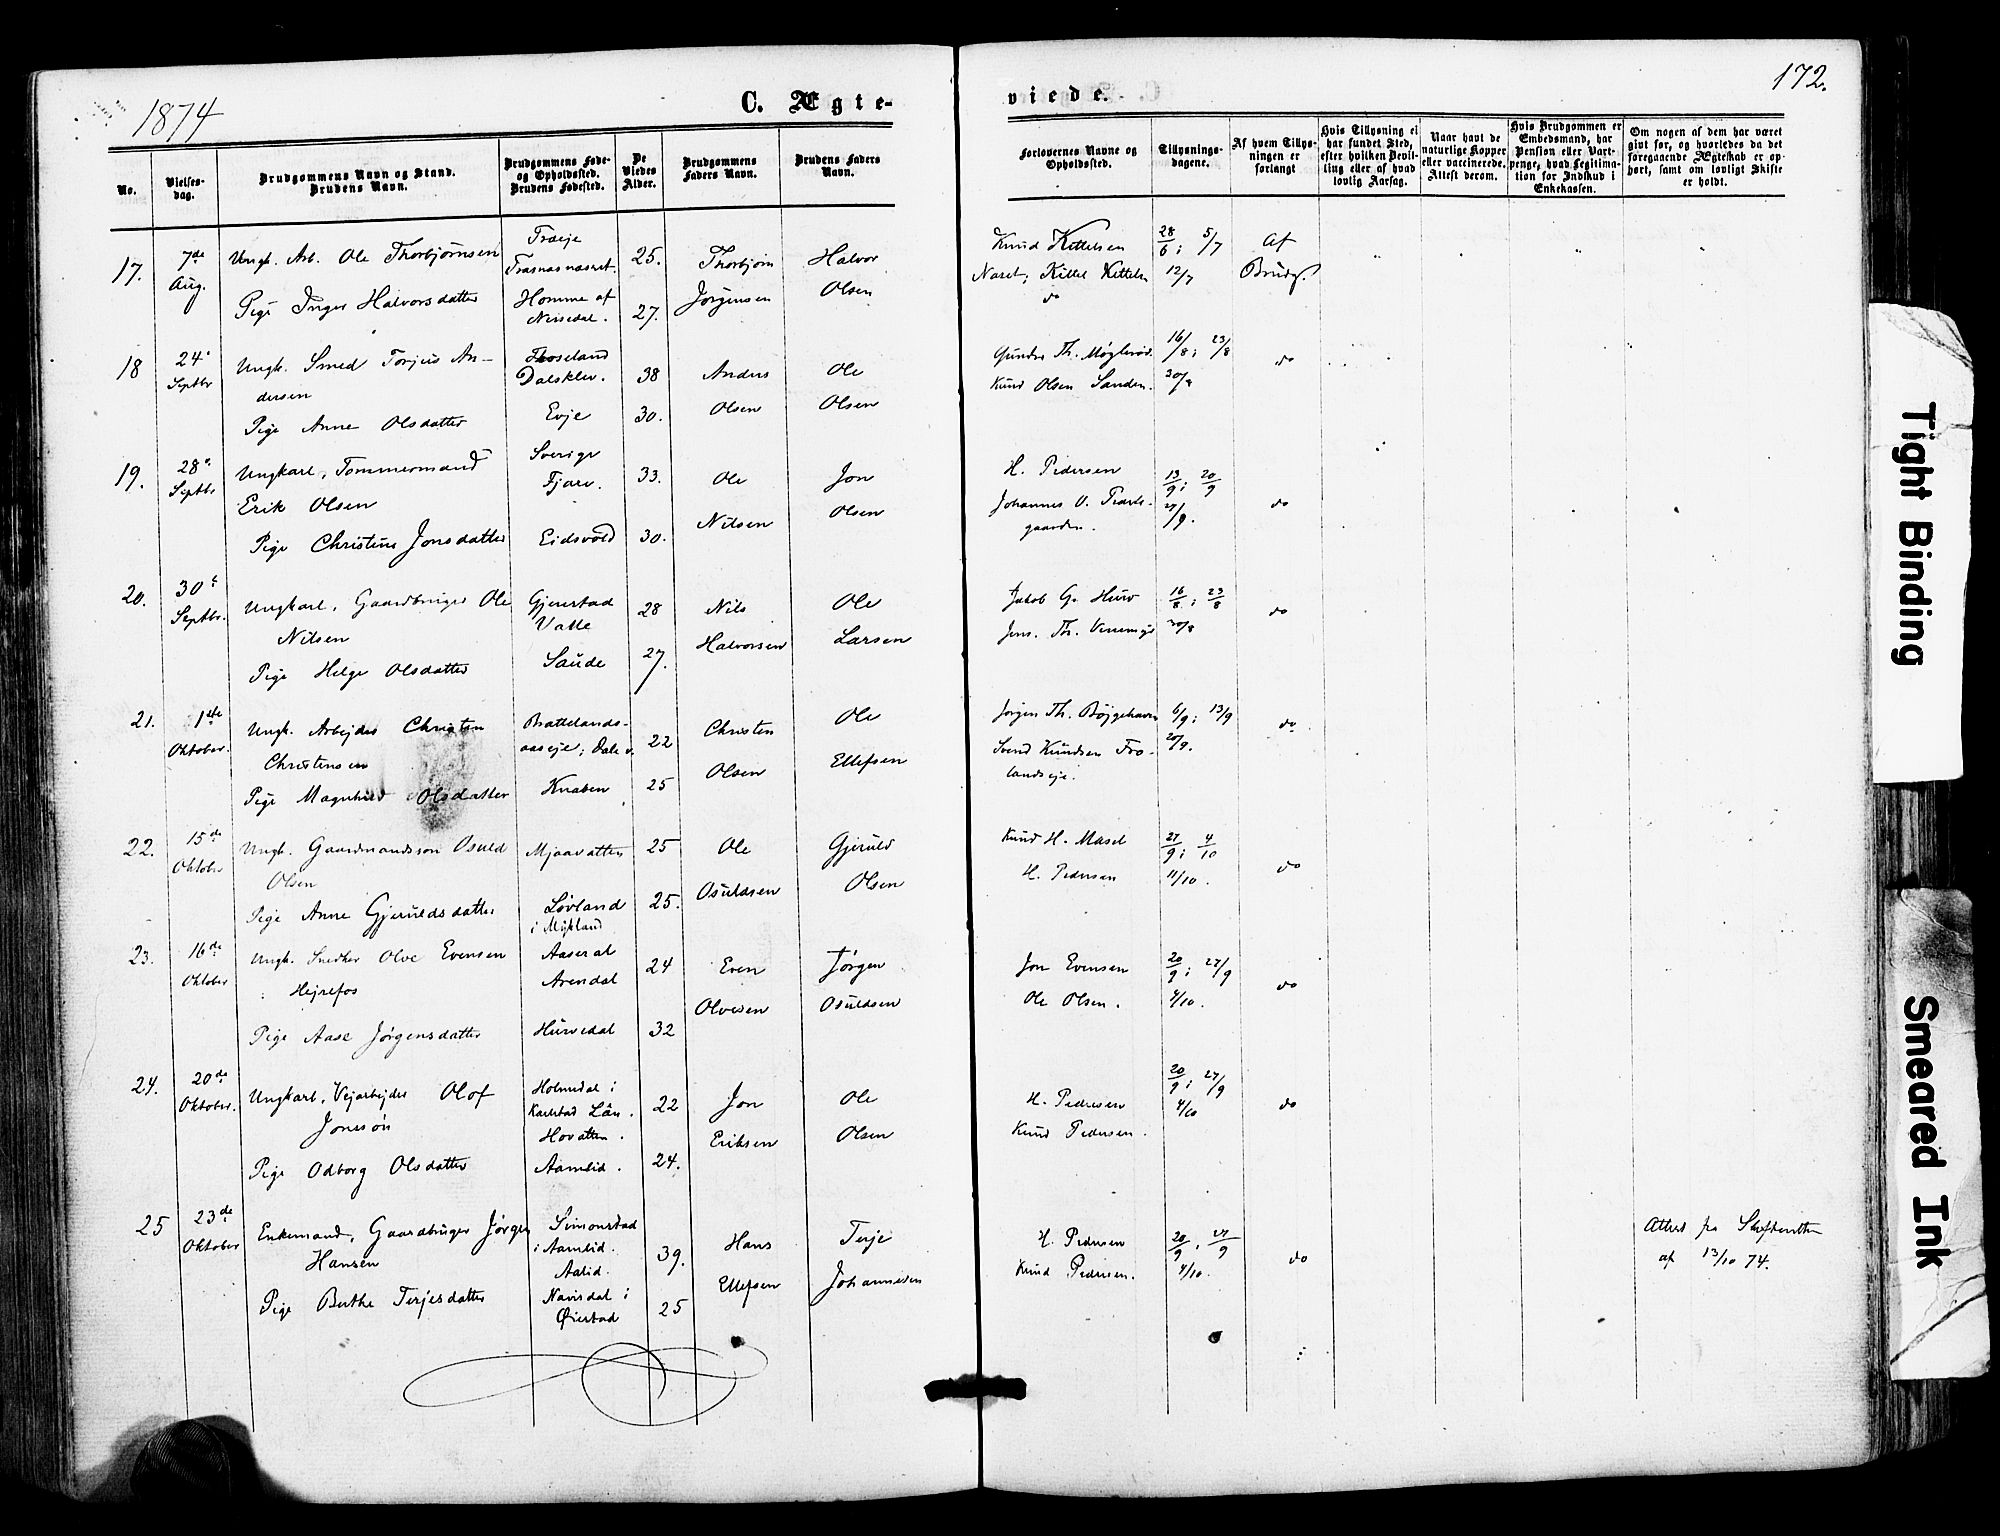 1874
C. Ægte-
viede.
172.
No.
Vielses-
dag.
Brudgommens Navn og Stand.
Brudens Navn.
Brudgommens Føde-
og Opholdsted.
Brudens Fødested.
De
Viedes
Alder.
Brudgommens
Faders Navn.
Brudens Faders
Navn.
Forlovernes Navne og
Opholdssted.
Tillysnings-
dagene.
Af hvem Tillys-
ningen er
forlangt
Hvis Tillysning ei
har fundet Sted,
efter hvilken Bevil-
ling eller af hvad
lovlig Aarsag.
Naar havt de
naturlige Kopper
eller vaccinerede.
Attest derom.
Hvis Brudgommen er
Embedsmand, har
Pension eller Vart-
penge, hvad Legitima-
tion for Indskud i
Enkekassen.
Om nogen af dem har været
givt før, og hvorledes da det
foregaaende Ægteskab er op-
hørt, samt om lovligt Skifte
er holdt.
17.
7de
Aug.
Ungk. Arb. Ole Thorbjørnsen
Pige Inger Halvorsdatter
Træje
Homme af
Nissedal.
25.
27.
Thorbjørn
Jørgensen
Halvor
Olsen
Knud Kittelsen
Naset, Kittel Kittels
do
28/6; 5/7
12/7
Af
Brudg.
18
24
Septbr
Ungk. Smed Torjus An-
dersen
Pige Anne Olsdatter
Dalsklev.
Evje
38
30.
Anders
Olsen
Ole
Olsen
Gunder Th. Møglerød.
Knud Olsen Sanden.
16/8; 23/8
30/8
do
19.
28
Septbr
Ungkarl, Tømmermand
Erik Olsen
Pige Christine Jonsdatter
Sverige
Eidsvold
33.
30.
Ole
Nilsen
Jon
Olsen
H. Pedersen
Johannes O.
gaarden.
13/9; 20/9
27/9.
do
20.
30
Septbr.
Ungkarl, Gaardbruger Ole
Nilsen
Pige Helge Olsdatter
Gjerestad
Valle
Saude
28
27.
Nils
Halvorsen
Ole
Larsen
Jakob G. Hurv
Jens. Th.
16/8; 23/8
30/8
do
21.
1ste
Oktober.
Ungk. Arbejder Christen
Christensen
Pige Magnhild Olsdatter
Brattelands-
aaseje; Dale
Knaben
22
25
Christen
Olsen
Ole
Ellefsen
Jørgen Th. Bøjgehaven
Svend Knudsen Fro-
landseje.
6/9; 13/9
20/9.
do
22.
15de
Oktober
Ungk. Gaardmandssøn Osuld
Olsen
Pige Anne Gjeruldsdatter
Mjaavatten
Løvland
i Mykland
25
25.
Ole
Osuldsen
Gjeruld
Olsen
Knud H. Masel
H. Pedersen
27/9; 4/10
11/10.
do
23.
16de
Oktober
Ungk. Snedker Olve Evensen
Hejrefos
Pige Aase Jørgensdatter
Aaseral
Arendal
Hurvedal
24
32
Even
Olvesen
Jørgen
Osuldsen
Jon Evensen
Ole Olsen.
20/9; 27/9
4/10.
do
24.
20de
Oktober.
Ungkarl, Vejarbejder Olof
Jonsøn
Pige Odborg Olsdatter
Holmedal i
Karlstad Län.
Hovatten.
Aamlid.
22
24.
Jon
Eriksen
Ole
Olsen
H. Pedersen
Knud Pedersen.
20/9; 27/9
4/10
do
25
23de
Oktober
Enkemand, Gaardbruger Jørgen
Hansen
Pige Berthe Terjesdatter
Simonstad
i Aamlid.
Navisdal i
Øiestad
39.
25
Hans
Ellefsen
Terje
Johannesen
H. Pedersen
Knud Pedersen.
20/9, 27/9
4/10.
do
Attest fra Skifteretten
af 13/10 74.
Tight Binding
Smeared Ink